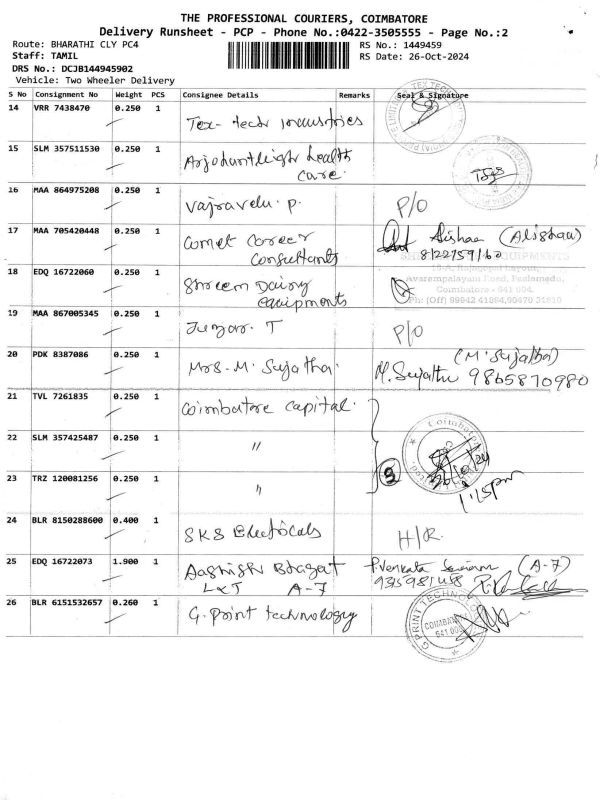 THE PROFESSIONAL COURIERS, COIMBATORE
Delivery Runsheet - PCP - Phone No.:0422-3505555 - Page No.:2
Route: BHARATHI CLY PC4 RS No.: 1449459
Staff: TAMIL RS Date: 26-Oct-2024
DRS No.: DCJB144945902
Vehicle: Two Wheeler Delivery
S No Consignment No Weight PCS Consignee Details Remarks Seal & Signature
14 VRR 7438470 0.250 1
Tex-tech industries
15 SLM 357511530 0.250 1
health
care.
16 MAA 864975208 0.250 1
Vajravelu. P. P/O
17 MAA 705420448 0.250 1
Comet Career
Consultants
18 EDQ 16722060 0.250 1
Shreem Dairy
equipments
Coimbatore - 641 004.
19 MAA 867005345 0.250 1
T P/O
20 PDK 8387086 0.250 1 (M. Sujatha)
Mrs. M. Sujatha. M. Sujatha 9865870980
21 TVL 7261835 0.250 1
Coimbatore capital.
22 SLM 357425487 0.250 1
〃
3
23 TRZ 120081256 0.250 1
〃
1.15pm
24 BLR 8150288600 0.400 1
SKS Electricals H/R.
25 EDQ 16722073 1.900 1
Bhagat (A-7)
L&T A-7
26 BLR 6151532657 0.260 1
G. Print technology
G PRINT TECHNOLOGY
641 004